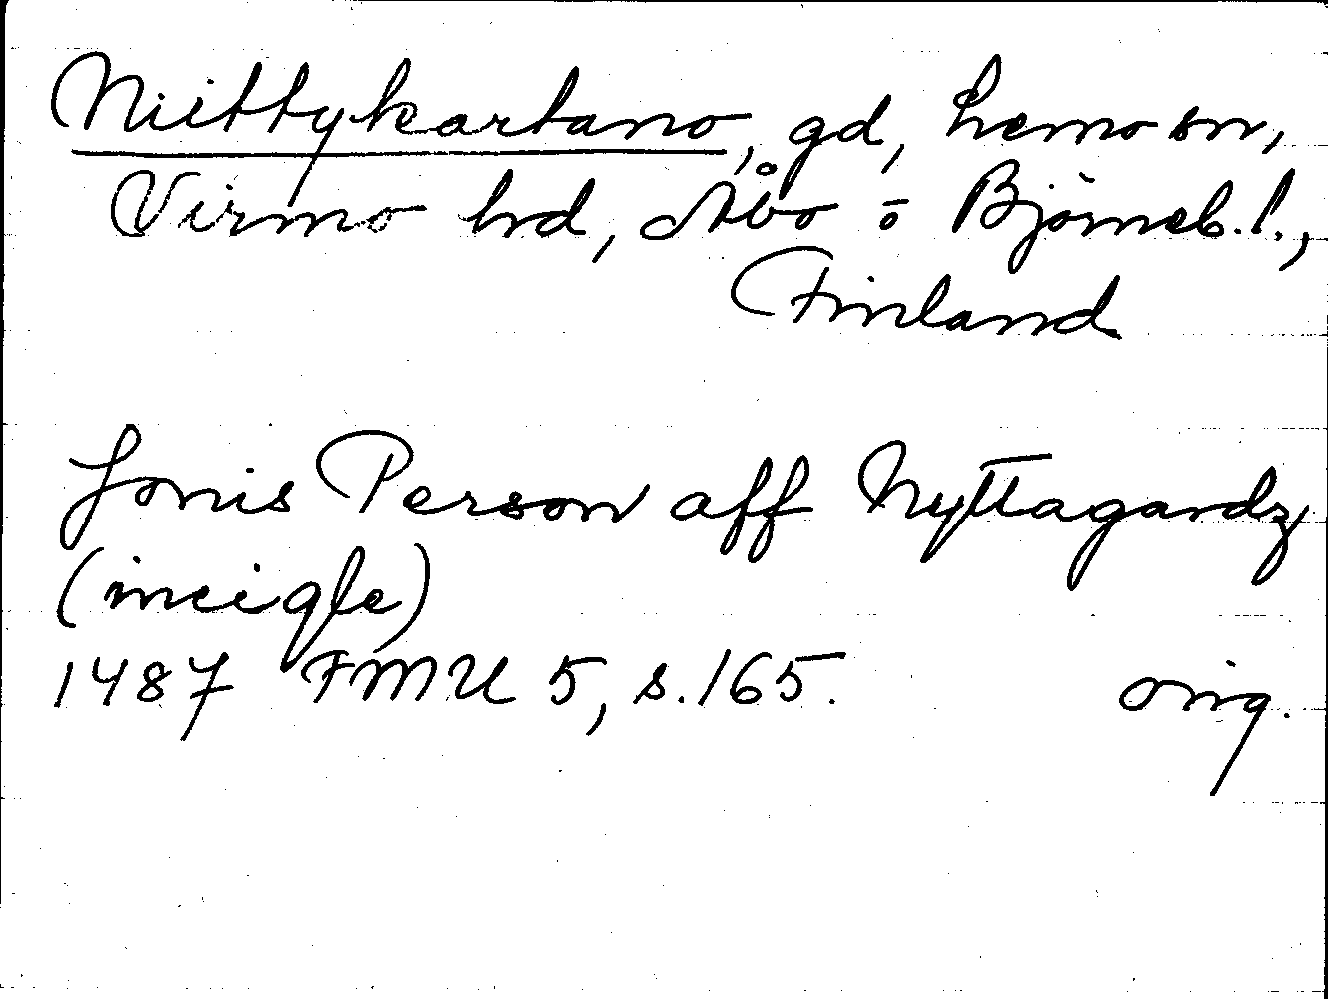 Niittykartano, gd, Lemo sn,
Virmo hd, Åbo o Björneb. l.,
Finland
Jonis Person aff Nyttagardz
(incigle)
1487 FMU 5, s. 165. orig.